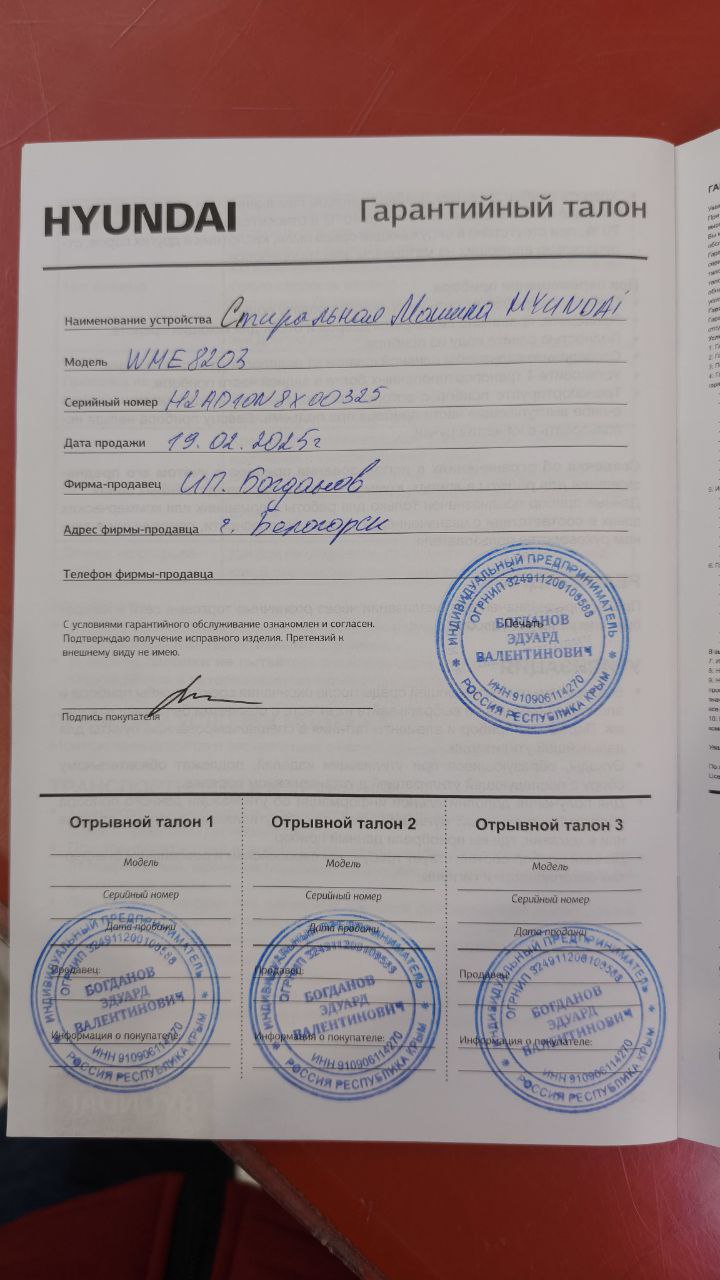 HYUNDAI
Гарантийный талон
Наименование устройства Стиральная Машина HYUNDAI
Модель WME8203
Серийный номер H2AD10N8X00325
Дата продажи 19.02.2025г
Фирма-продавец ИП. Богданов
Адрес фирмы-продавца г. Белогорск
Телефон фирмы-продавца
С условиями гарантийного обслуживание ознакомлен и согласен.
Подтверждаю получение исправного изделия. Претензий к
внешнему виду не имею.
Подпись покупателя
Печать
ИНДИВИДУАЛЬНЫЙ ПРЕДПРИНИМАТЕЛЬ
ОГРНИП 324911200106586
БОГДАНОВ
ЭДУАРД
ВАЛЕНТИНОВИЧ
ИНН 910906114270
РОССИЯ РЕСПУБЛИКА КРЫМ
Отрывной талон 1
Модель
Серийный номер
Дата продажи
Продавец:
Информация о покупателе:
ИНДИВИДУАЛЬНЫЙ ПРЕДПРИНИМАТЕЛЬ
ОГРНИП 324911200106586
БОГДАНОВ
ЭДУАРД
ВАЛЕНТИНОВИЧ
ИНН 910906114270
РОССИЯ РЕСПУБЛИКА КРЫМ
Отрывной талон 2
Модель
Серийный номер
Дата продажи
Продавец:
Информация о покупателе:
ИНДИВИДУАЛЬНЫЙ ПРЕДПРИНИМАТЕЛЬ
ОГРНИП 324911200106586
БОГДАНОВ
ЭДУАРД
ВАЛЕНТИНОВИЧ
ИНН 910906114270
РОССИЯ РЕСПУБЛИКА КРЫМ
Отрывной талон 3
Модель
Серийный номер
Дата продажи
Продавец:
Информация о покупателе:
ИНДИВИДУАЛЬНЫЙ ПРЕДПРИНИМАТЕЛЬ
ОГРНИП 324911200106586
БОГДАНОВ
ЭДУАРД
ВАЛЕНТИНОВИЧ
ИНН 910906114270
РОССИЯ РЕСПУБЛИКА КРЫМ